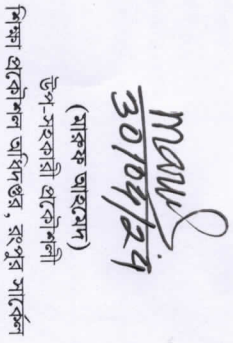 30/04/24
(মারুফ আহমেদ)
উপ-সহকারী প্রকৌশলী
শিক্ষা প্রকৌশল অধিদপ্তর, রংপুর সার্কেল